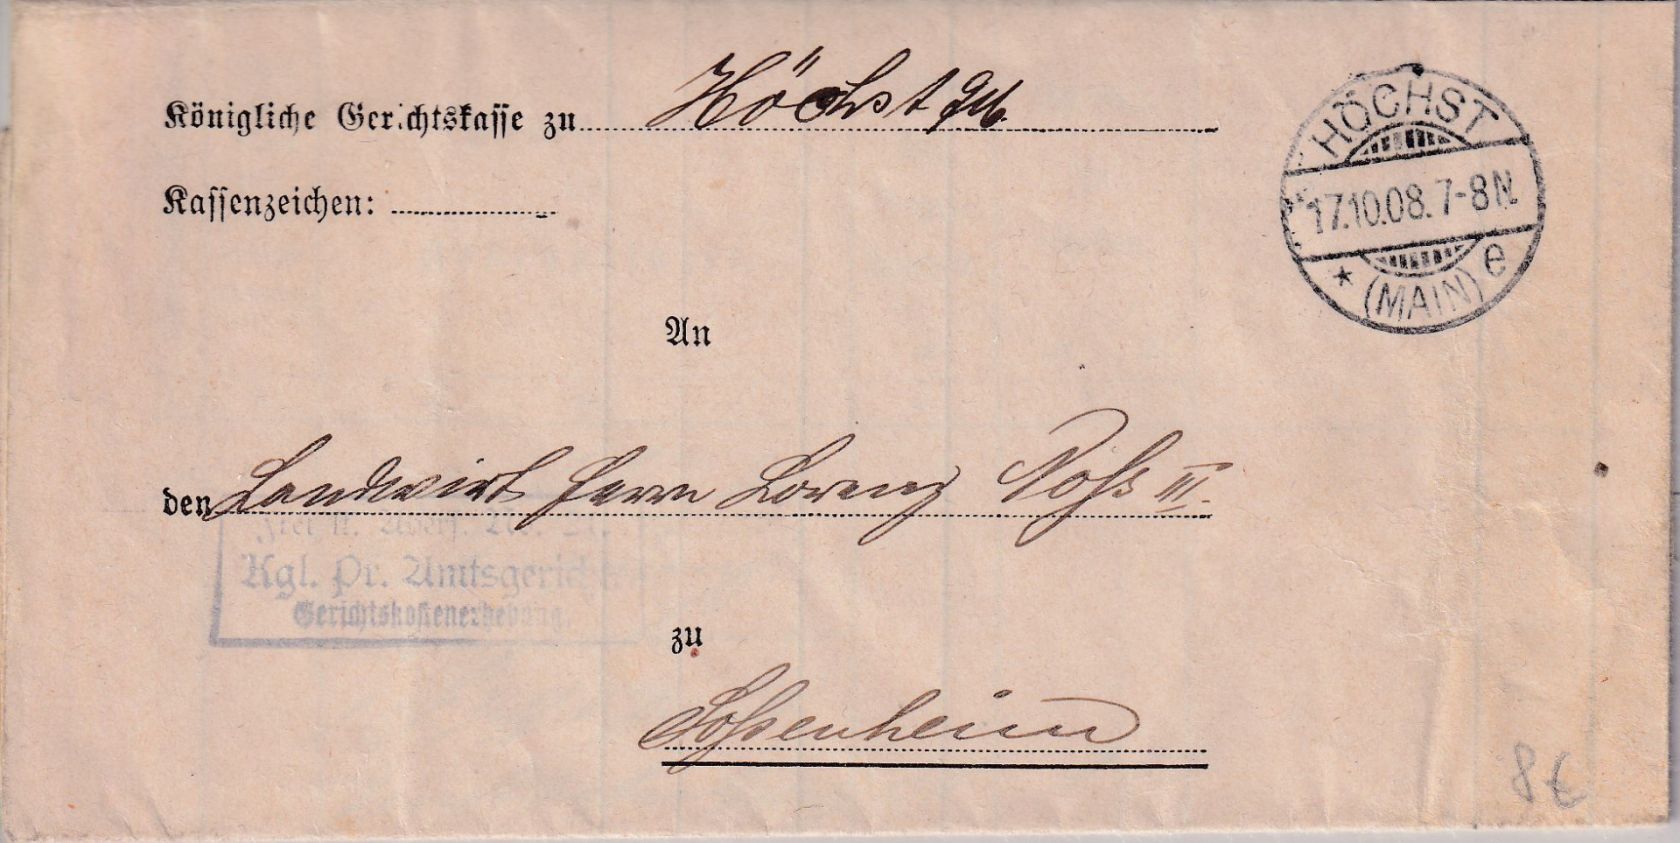 Königliche Gerichtskasse zu Höchst
HÖCHST
17.10.08.7-8N.
* (MAIN) e
Kassenzeichen:
An
den Landwirt Herrn Lorenz III.
Kgl. Pr. Amtsgericht
Gerichtskostenerhebung.
zu
Sossenheim
8€